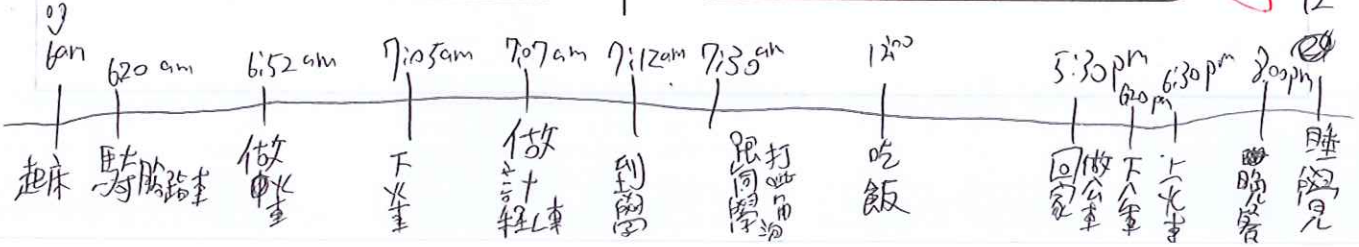 6am
620 am
6:52 am
7:05am
7:07am
7:12am
7:30am
12:00
5:30pm
620pm
6:30pm
8:00pm
12
起床
騎腳踏車
做火車
下火車
做計程車
到學
跟同學打
吃飯
做公車回家
下公車
上火車
晚餐
睡覺